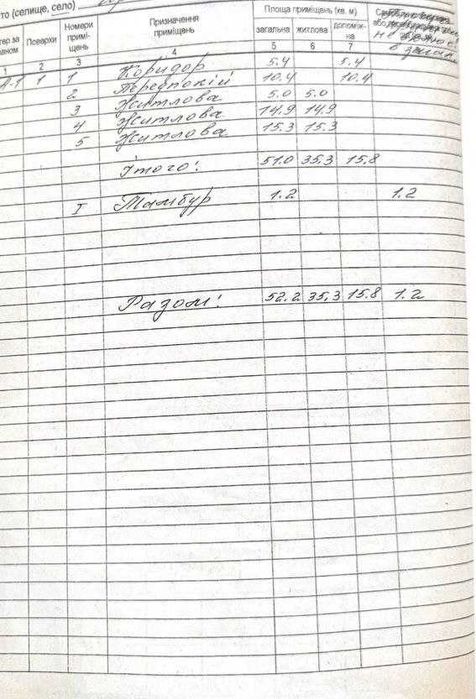 то (селище, село)
тер за
ланом
Поверхи
Номери
примі-
щень
Призначення
приміщень
Площа приміщень (кв. м)
загальна
житлова
допоміж-
на
1 2 3 4 5 6 7
А-1 1 1 Коридор 5.4 5.4
2 Передпокій 10.4 10.4
3 Житлова 5.0 5.0
4 Житлова 14.9 14.9
5 Житлова 15.3 15.3
Ітого: 51.0 35.3 15.8
I Тамбур 1.2 1.2
Разом: 52.2 35,3 15.8 1.2